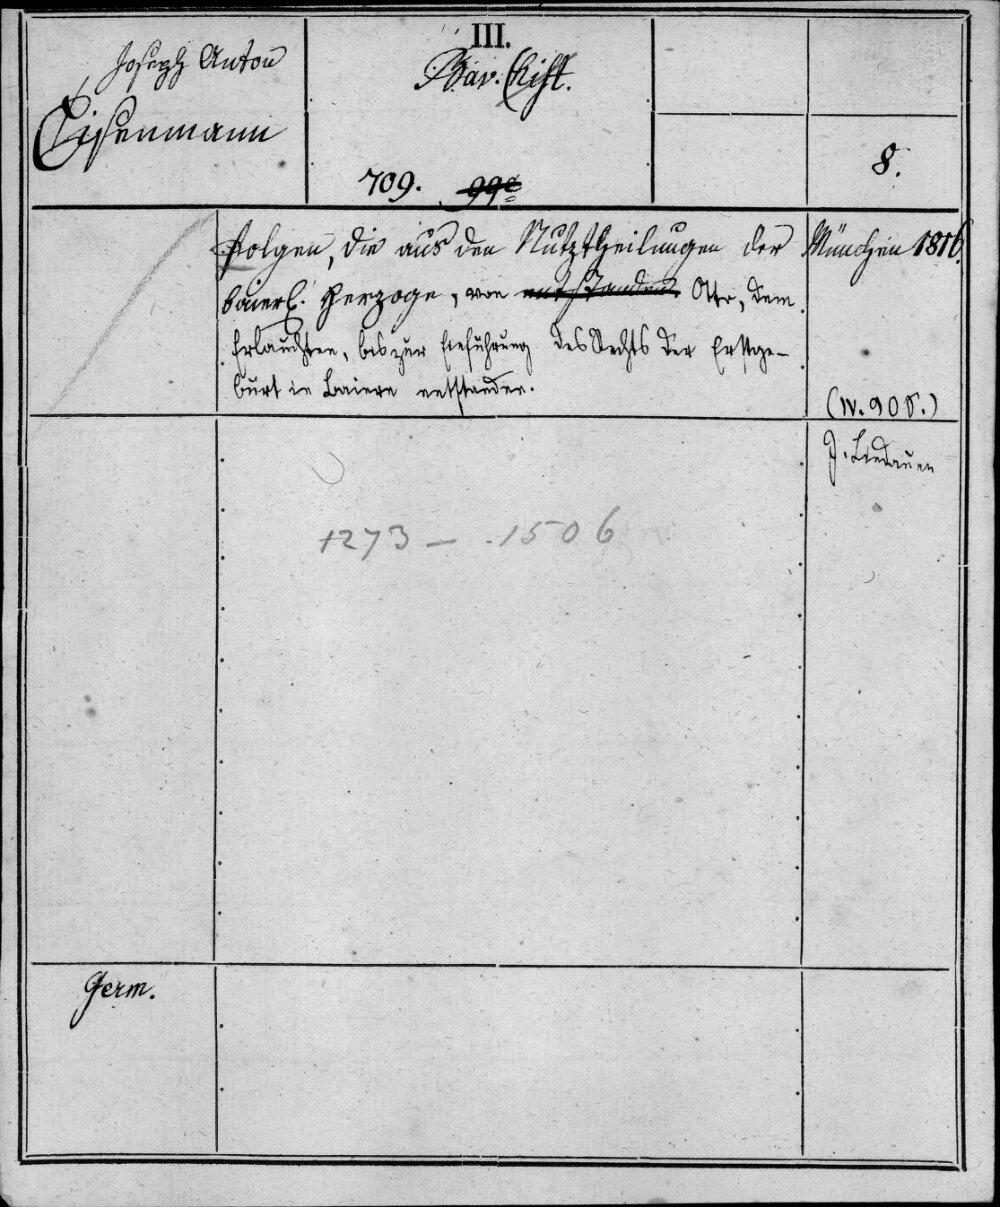 Joseph Anton
Eisenmann
III.
Bav. Hist.
709. 99c
8.
Folgen, die aus den Nutztheilungen der
baierl. Herzoge, von entstanden Otto, dem
Erlauchten, bis zur Einführung des Rechts der Erstge-
burt in Baiern entstanden.
München 1816.
(IV. 908.)
J. Lindauer
1273 - 1506
Germ.